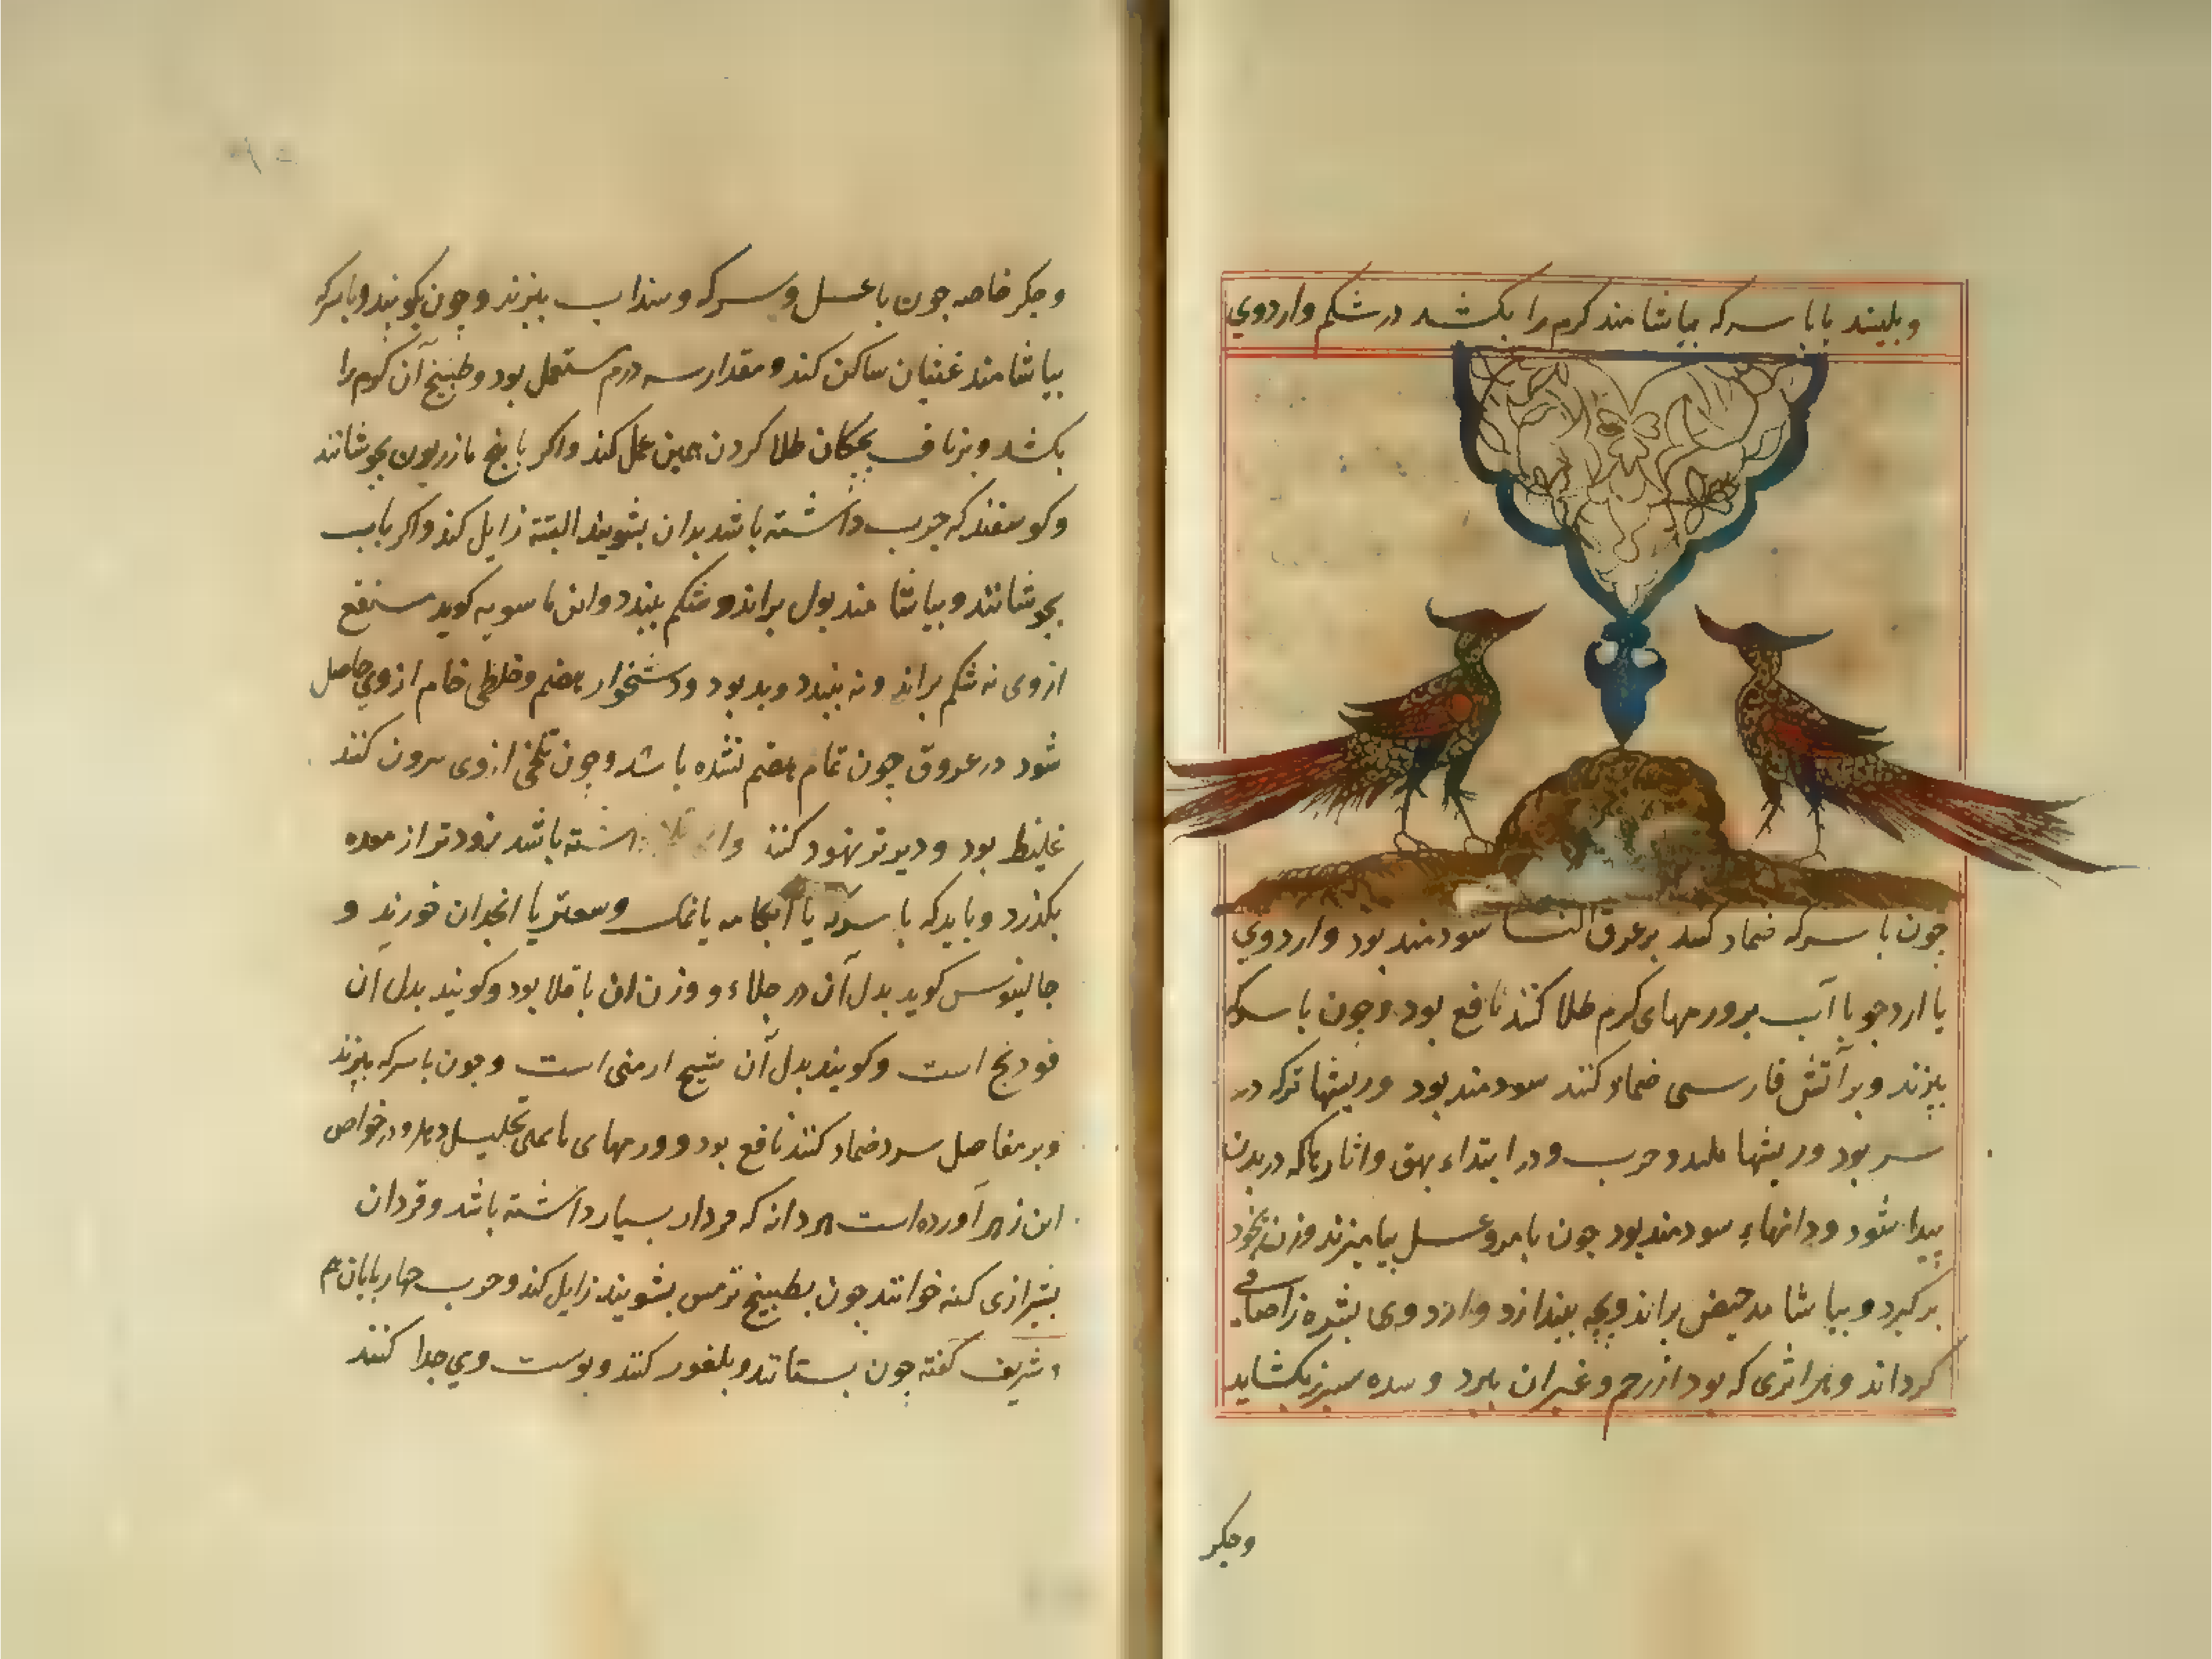 و بلیسند یا با سرکه بیاشامند کرم را بکشد در شکم و ارد وی
چون با سرکه ضماد کنند بر عرق النسا سودمند بود و ارد وی
با ارد جو با آب بر ورمهای کرم طلا کنند نافع بود و چون با سرکه
بپزند و بر آتش فارسی ضماد کنند سودمند بود و ریشها ترکه در
سر بود و ریشها بلید و جرب و در ابتداء بهق و اثارها که در بدن
پیدا شود و دانهاء سودمند بود چون با مر و عسل بیامیزند و زن بخود
برکیرد و بیاشامد حیض براند و بچه بیندازد و ارد وی بشره را صافی
کرداند و هر اثری که بود از زخم و غیر ان ببرد و سده سپرز بکشاید
وجکر
و جکر خاصه چون با عسل و سرکه و سنداب بپزند و چون بکوبند و با سرکه
بیاشامند غثیان ساکن کند و مقدار سه درم مستعمل بود و طبیخ آن کرم را
بکشد و بر ناف بچکان طلا کردن همین عمل کند و اکر با بیخ مازریون بجوشانند
و کوسفند که جرب داشته باشد بدان بشویند البته زایل کند و اکر باب
بجوشانند و بیاشامند بول براند و شکم ببندد و ابن ماسویه کوید مستنقع
از وی نه شکم براند و نه ببندد و بد بود و دشخوار هضم و خلطی خام از وی حاصل
شود در عروق چون تمام هضم نشده باشد و چون تلخی از وی بیرون کنند
غلیظ بود و دیرتر نفوذ کند و انه تلخ داشته باشد زودتر از معده
بکذرد و باید که با سرکه یا آبکامه یا نمک و سعتر یا انجدان خورند و
جالینوس کوید بدل آن در جلاء و وزن ان باقلا بود و کویند بدل آن
فودنج است و کویند بدل آن شیح ارمنی است و چون با سرکه بپزند
و بر مفاصل سرد ضماد کنند نافع بود و ورمهای بلغمی تحلیل دهد و در خواص
ابن زهر آورده است هر دانه که مردار بسیار داشته باشد و قردان
بشیرازی کنه خوانند چون بطبیخ ترمس بشویند زایل کند و جرب چهارپایان هم
و شریف کفته چون بستانند و بلغور کنند و پوست وی جدا کنند